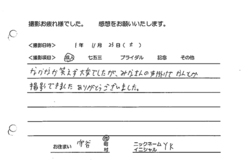 撮影お疲れ様でした。 感想をお願いいたします。
<撮影日時> 1年 11月 25日( )
<撮影項目> 七五三 ブライダル 記念 その他
なかなか笑えず大変でしたが、みなさんの手助けで なんとか
撮影できました ありがとうございました。
お住まい 守谷 市 ニックネーム イニシャル Y.K